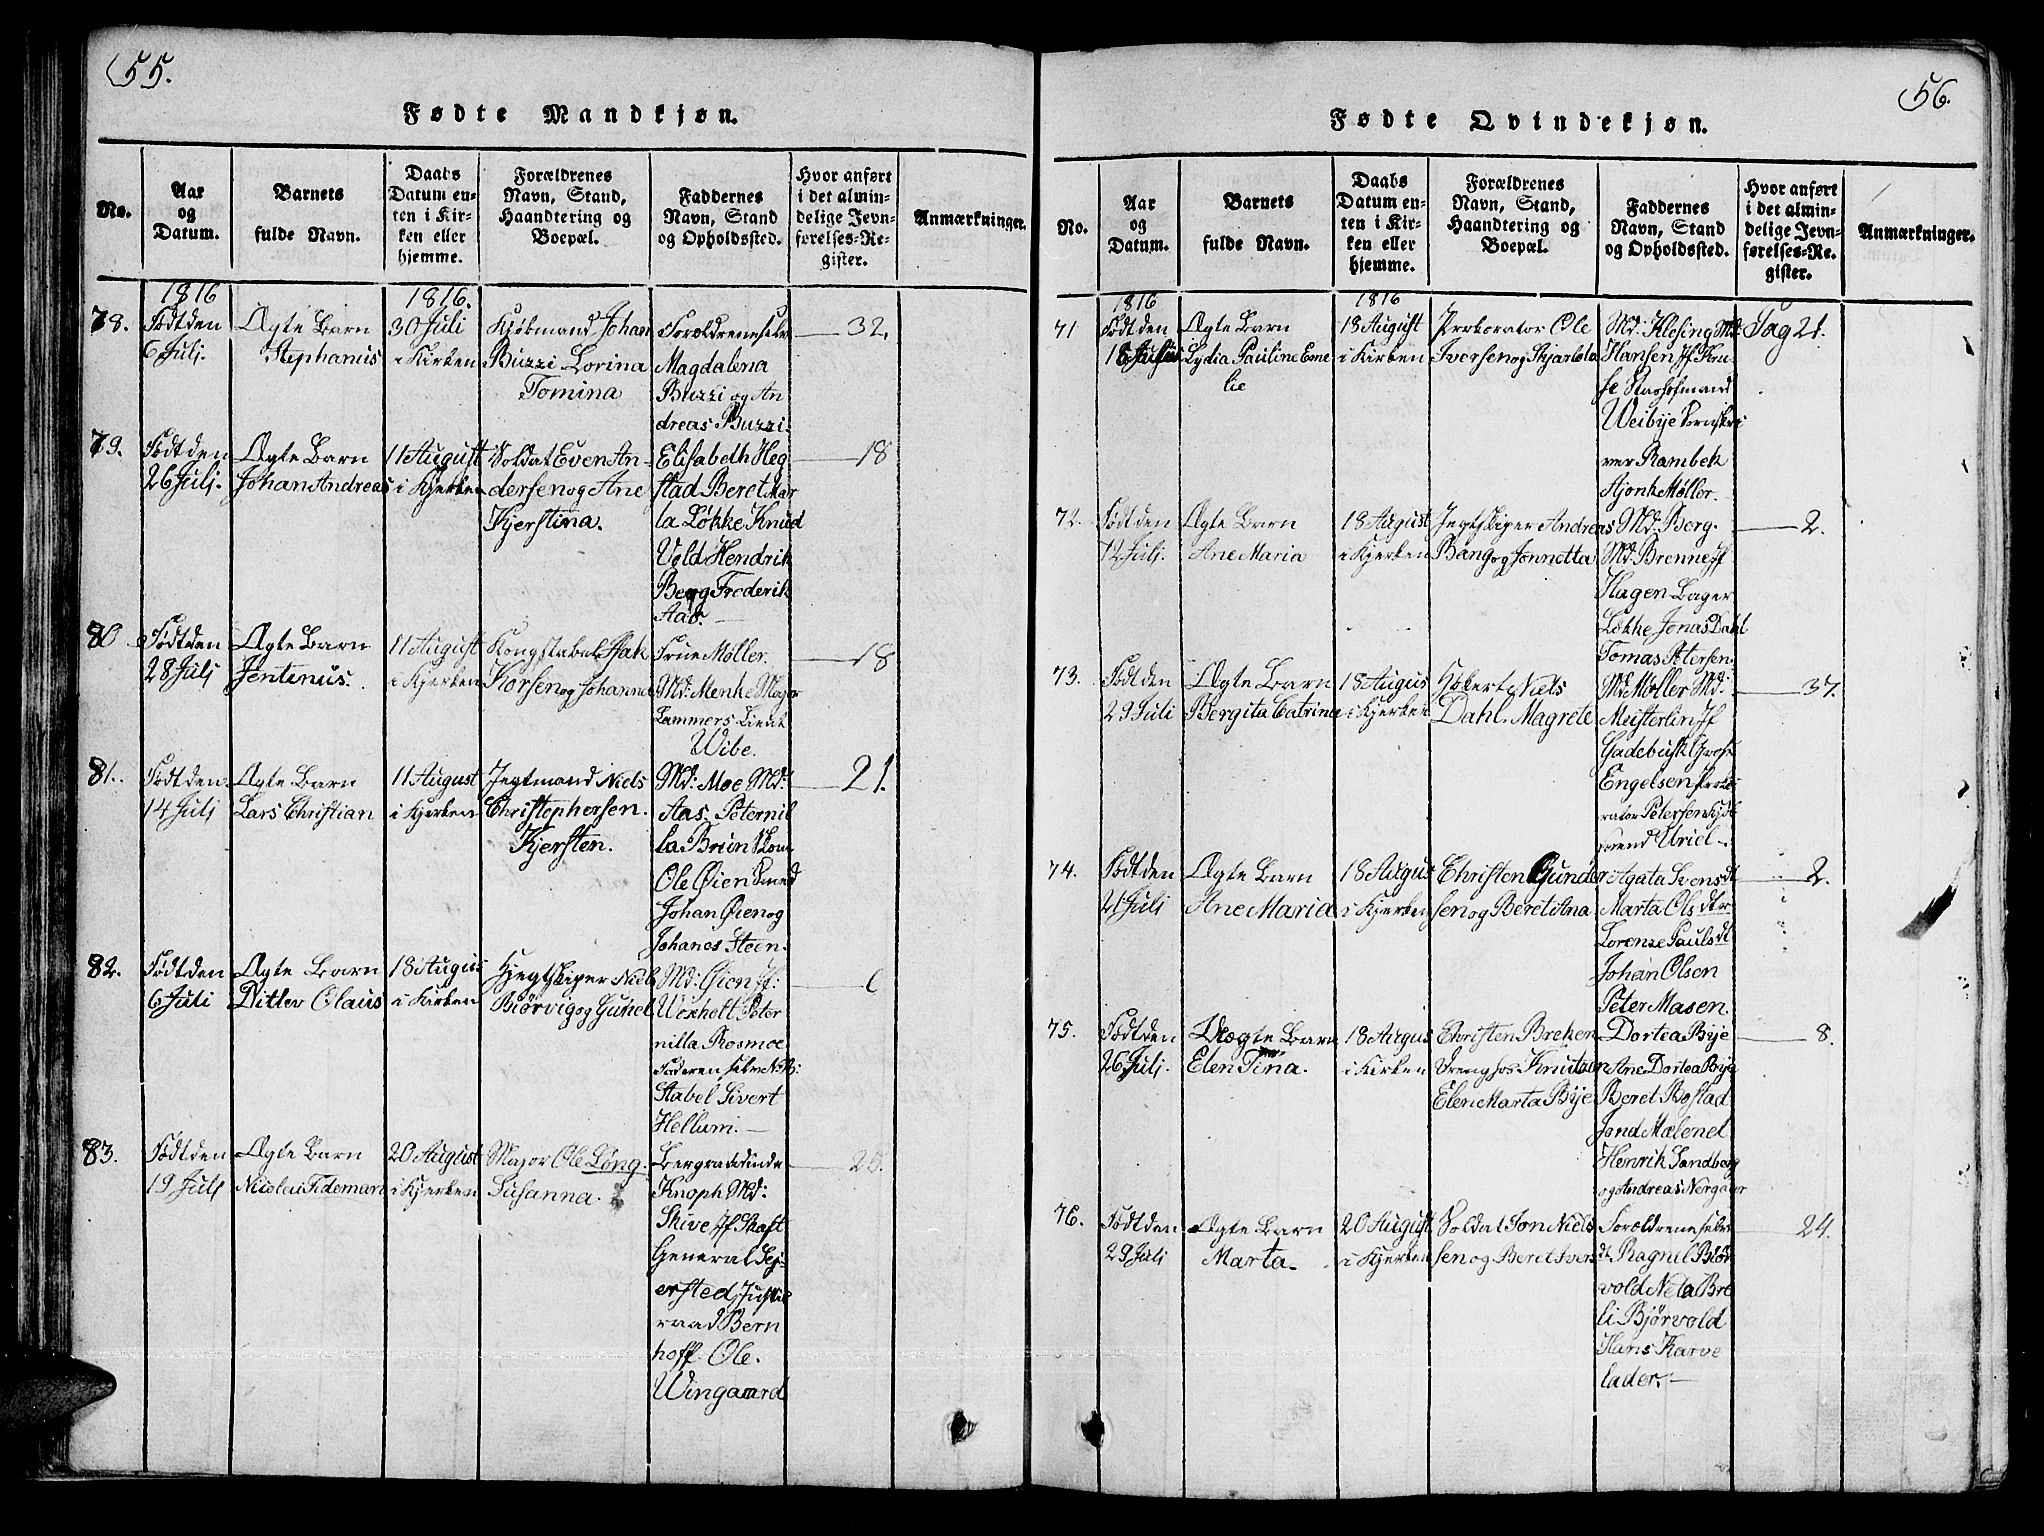 55.
Fødte Mandkjøn.
No.
Aar
og
Datum.
Barnets
fulde Navn.
Daabs
Datum en-
ten i Kir-
ken eller
hjemme.
Forældrenes
Navn, Stand,
Haandtering og
Boepæl.
Faddernes
Navn, Stand
og Opholdssted.
Hvor anført
i det almin-
delige Jevn-
førelses-Re-
gister.
Anmærkninger.
1816
1816.
78.
Födt den
6 Julj.
Ægte Barn
Stephanus
30 Juli
i Kirken
Kjøbmand Johan
Buzzi Lorina
Tomina
Foroldrene selv
Magdalena
Buzzi og An
dreas Buzzi.
32.
79.
Födt den
26 Julj.
Ægte Barn
Johan Andreas
11 August
i Kjerken
Soldat Even An-
dersen og Ane
Kjerstina.
Elisabeth Heg
stad Beret Mar
la Løkke Knud
Vold Hendrik
Berg Frederik
Aas.
18
80
Födt den
28 Julj
Ægte Barn
Jentinus.
11 August
i Kjerken
Kongstabel Isak
Korsen og Johanne
Frue Møller.
Md: Menke Major
Lammers Lieut
Wibe.
18
81.
Födt den
14 Julj
Ægte Barn
Lars Christian
11 August
i Kjerken
Jegtmand Niels
Christophersen.
Kjersten.
Md: Moe Md:
Aas. Peternil
la Bruun
Ole Øien Smed
Johan Øien og
Johanes Steen.
21.
82.
Födt den
6 Juli
Ægte Barn
Ditlev Olaus
18 Augus
i Kirken
Hjegtskiper Niels
Biörvig og Gunel
Md: Øien Jf:
Wexhelt Peter
nilla Rosmoe
Faderen selv
Stabel Sivert
Hellum.
6
83.
Födt den
19 Julj
Ægte Barn
Nicolai Tideman
20 August
i Kjerken
Major Ole Löng.
Susanna.
Bergraadinde
Knoph Md:
Skive Jf Skaft
General Sej-
ersted Justis
raad Bern
hoff. Ole.
Wingaard
25.
56.
Fødte Qvindekjøn.
No.
Aar
og
Datum.
Barnets
fulde Navn.
Daabs
Datum en-
ten i Kir-
ken eller
hjemme.
Forældrenes
Navn, Stand,
Haandtering og
Boepæl.
Faddernes
Navn, Stand
og Opholdssted.
Hvor anført
i det almin-
delige Jevn-
førelses-Re-
gister.
Anmærkninger.
1816
1816
71
Födt den
18 Julii
Ægte Barn
Lydia Pauline Eme
lie
18 August
i Kirken
Prokorator Ole
Iversen og Hjarlota
Md: Klesing Md:
Hansen Jf Kru
se
Weibye
ver Rambek
Hjonk Møller.
Pag 21.
72.
Födt den
12 Julj.
Ægte Barn
Ane Maria
18 August
i Kjerken
Jegtskiper Andreas
Bang og Jonnetta
Md: Berg.
Md: Brenne Jf
Hagen Bager
Løkke Jonas Dahl
Tomas Petersen.
2.
73.
Födt den
29 Juli
Ægte Barn
Bergita Catrina
18 Augus
i Kjerken
Hökert Niels
Dahl. Magrete
Md Møller Md:
Meisterlin Jf
Gadebusk
Engelsen Proku
rator Petersen Kjöb
mand Uriel.
37.
74.
Födt den
21 Julj
Ægte Barn
Ane Maria
18 Augus
i Kjerken
Christen Gunder
sen og Beret Ana
Agata Svens dt
Marta Ols dtr
Lorenze Pauls dt
Johan Olsen
Peter Masen.
2.
75.
Födt den
26 Julj.
Uægte Barn
Elen Tina.
18 Augus
i Kirken
Christen Breken
Dreng hos Knutzon
Elen Marta Bye
Dortea Bye
Ane Dortea Bye
Beret Bostad
Jond Mælenet
Henrik Sandberg
og Andreas Nergaar
8.
76.
Födt den
29 Juli
Ægte Barn
Marta.
20 August
i Kjerken
Soldat Jon Niels
sen og Beret Ivers
Foroldrene selv
dt Ragnel Biör
vold Neta Bre
li Bjørvold
Hans Karve
lader.
24.